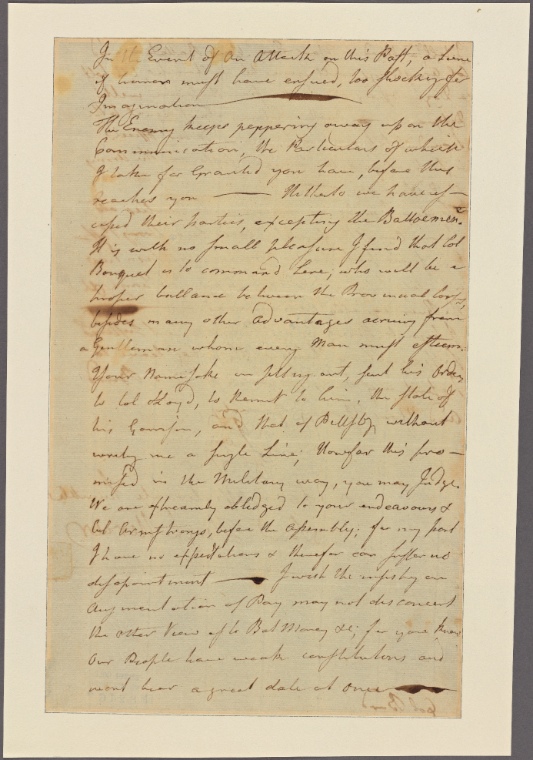 In the Event of an Attack on this Post, a Scene
of horror must have ensued, too shocking for
Imagination
The Enemy keeps peppering away upon the
Communication, the Particulars of which
I take for Granted you have, before this
reaches you — Hitherto we have es-
caped their parties, excepting the Battoemen.
It is with no small pleasure I find that Col
Bouquet is to command here, who will be a
proper ballance between the Provincial Corps,
besides many other advantages acruing from
a Gentleman whom every Man must esteem.
Your Namesake on setting out, sent his Orders
to Col Lloyd, to transmit to him, the State of
his Garrison, and that of Pittsbg, without
writing me a single Line; How far this pro-
mised in the Military way, you may Judge.
We are extreamly obledged to your endeavours &
Col Armstrongs, before the Assembly; for my part
I have no expectations & therefor can suffer no
disapointment — I wish the requesting an
Augmentation of Pay may not disconcert
the other View of to Bat Money &c; for you know
Our People have weak constitutions and
wont bear a great date at Once